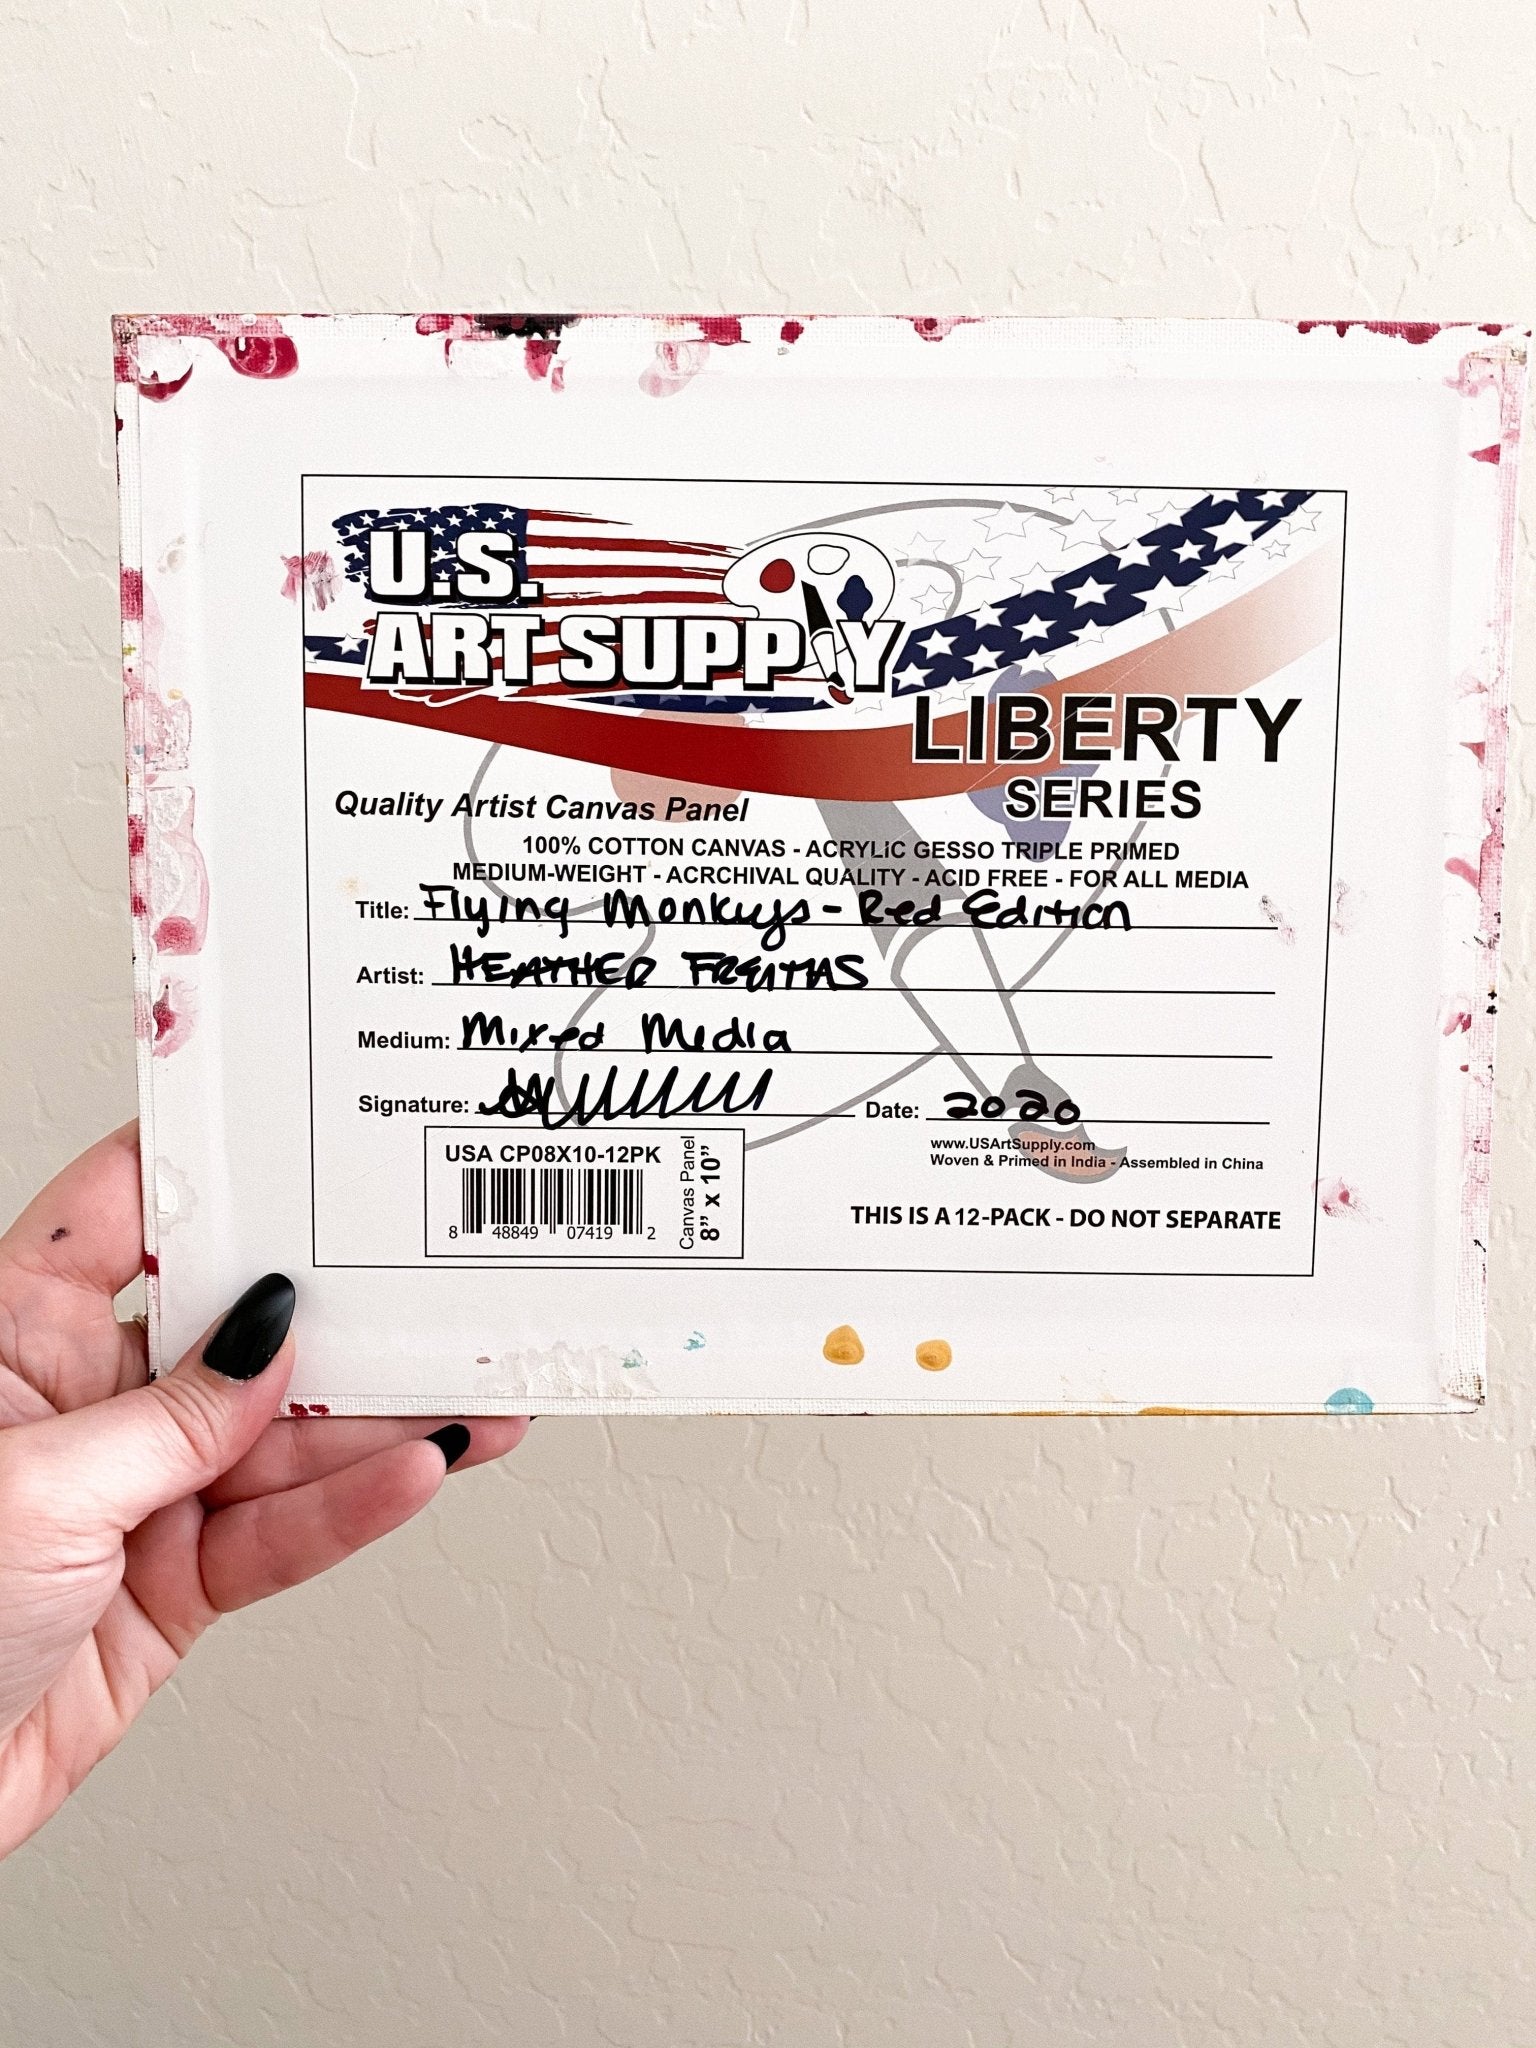 U.S.
ART SUPPLY
LIBERTY
SERIES
Quality Artist Canvas Panel
100% COTTON CANVAS - ACRYLIC GESSO TRIPLE PRIMED
MEDIUM-WEIGHT - ACRCHIVAL QUALITY - ACID FREE - FOR ALL MEDIA
Title: Flying Monkeys - Red Edition
Artist: HEATHER FREITAS
Medium: Mixed Media
Signature: Date: 2020
www.USArtSupply.com
Woven & Primed in India - Assembled in China
USA CP08X10-12PK
8 48849 07419 2
Canvas Panel
8” x 10”
THIS IS A 12-PACK - DO NOT SEPARATE